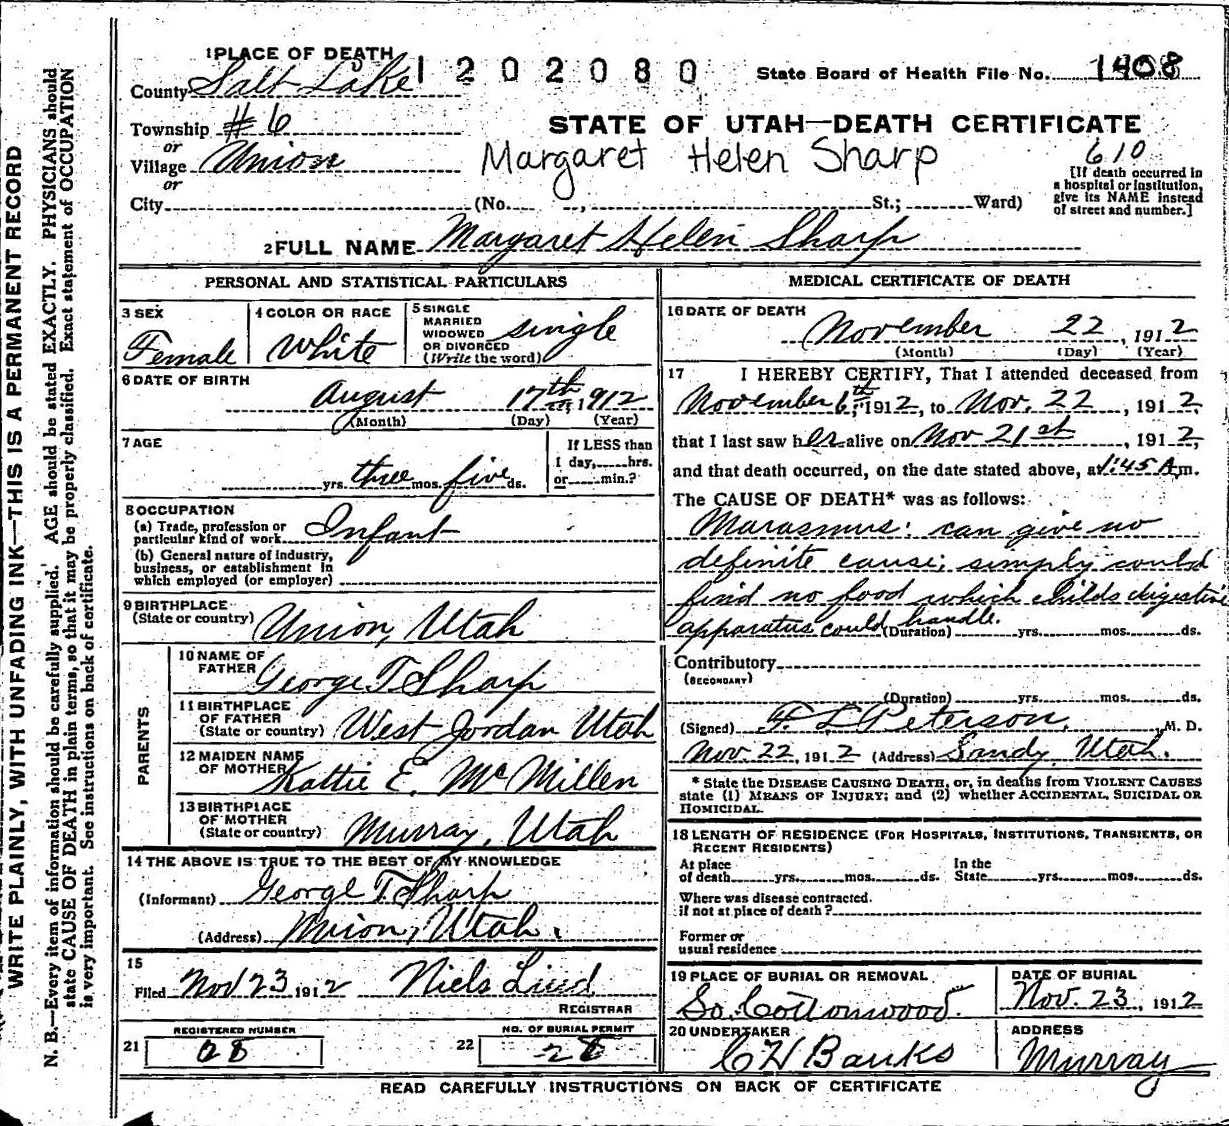 1 PLACE OF DEATH
1202080
State Board of Health File No. 1408
County Salt Lake
Township #6
or
Village Union
or
City (No. , St.; Ward)
STATE OF UTAH—DEATH CERTIFICATE
Margaret Helen Sharp
610
[If death occurred in
a hospital or institution,
give its NAME instead
of street and number.]
2 FULL NAME Margaret Helen Sharp
PERSONAL AND STATISTICAL PARTICULARS
3 SEX
Female
4 COLOR OR RACE
White
5 SINGLE
MARRIED
WIDOWED
OR DIVORCED
(Write the word)
single
6 DATE OF BIRTH
August 17th 1912
(Month) (Day) (Year)
7 AGE
yrs. three mos. five ds.
If LESS than
1 day, hrs.
or min.?
8 OCCUPATION
(a) Trade, profession or
particular kind of work Infant
(b) General nature of industry,
business, or establishment in
which employed (or employer)
9 BIRTHPLACE
(State or country) Union, Utah
PARENTS
10 NAME OF
FATHER George T. Sharp
11 BIRTHPLACE
OF FATHER
(State or country) West Jordan Utah
12 MAIDEN NAME
OF MOTHER Kattie E. McMillen
13 BIRTHPLACE
OF MOTHER
(State or country) Murray, Utah
14 THE ABOVE IS TRUE TO THE BEST OF MY KNOWLEDGE
(Informant) George T. Sharp
(Address) Union, Utah.
15
Filed Nov 23 1912 Niels Lind
REGISTRAR
REGISTERED NUMBER
21 28
NO. OF BURIAL PERMIT
22 28
MEDICAL CERTIFICATE OF DEATH
16 DATE OF DEATH
November 22, 1912
(Month) (Day) (Year)
17 I HEREBY CERTIFY, That I attended deceased from
November 6th, 1912, to Nov. 22, 1912,
that I last saw her alive on Nov 21st, 1912,
and that death occurred, on the date stated above, at 1:45 A.m.
The CAUSE OF DEATH* was as follows:
Marasmus: can give no
definite cause; simply could
find no food which childs digestive
apparatus could handle. (Duration) yrs. mos. ds.
Contributory
(SECONDARY)
(Duration) yrs. mos. ds.
(Signed) F. L. Peterson, M. D.
Nov. 22, 1912 (Address) Sandy, Utah.
* State the DISEASE CAUSING DEATH, or, in deaths from VIOLENT CAUSES
state (1) MEANS OF INJURY; and (2) whether ACCIDENTAL, SUICIDAL OR
HOMICIDAL.
18 LENGTH OF RESIDENCE (FOR HOSPITALS, INSTITUTIONS, TRANSIENTS, OR
RECENT RESIDENTS)
At place
of death yrs. mos. ds.
In the
State yrs. mos. ds.
Where was disease contracted.
if not at place of death?
Former or
usual residence
19 PLACE OF BURIAL OR REMOVAL
So. Cottonwood.
DATE OF BURIAL
Nov. 23, 1912
20 UNDERTAKER
C H Banks
ADDRESS
Murray
READ CAREFULLY INSTRUCTIONS ON BACK OF CERTIFICATE
WRITE PLAINLY, WITH UNFADING INK—THIS IS A PERMANENT RECORD
N. B.—Every item of information should be carefully supplied. AGE should be stated EXACTLY. PHYSICIANS should
state CAUSE OF DEATH in plain terms, so that it may be properly classified. Exact statement of OCCUPATION
is very important. See instructions on back of certificate.